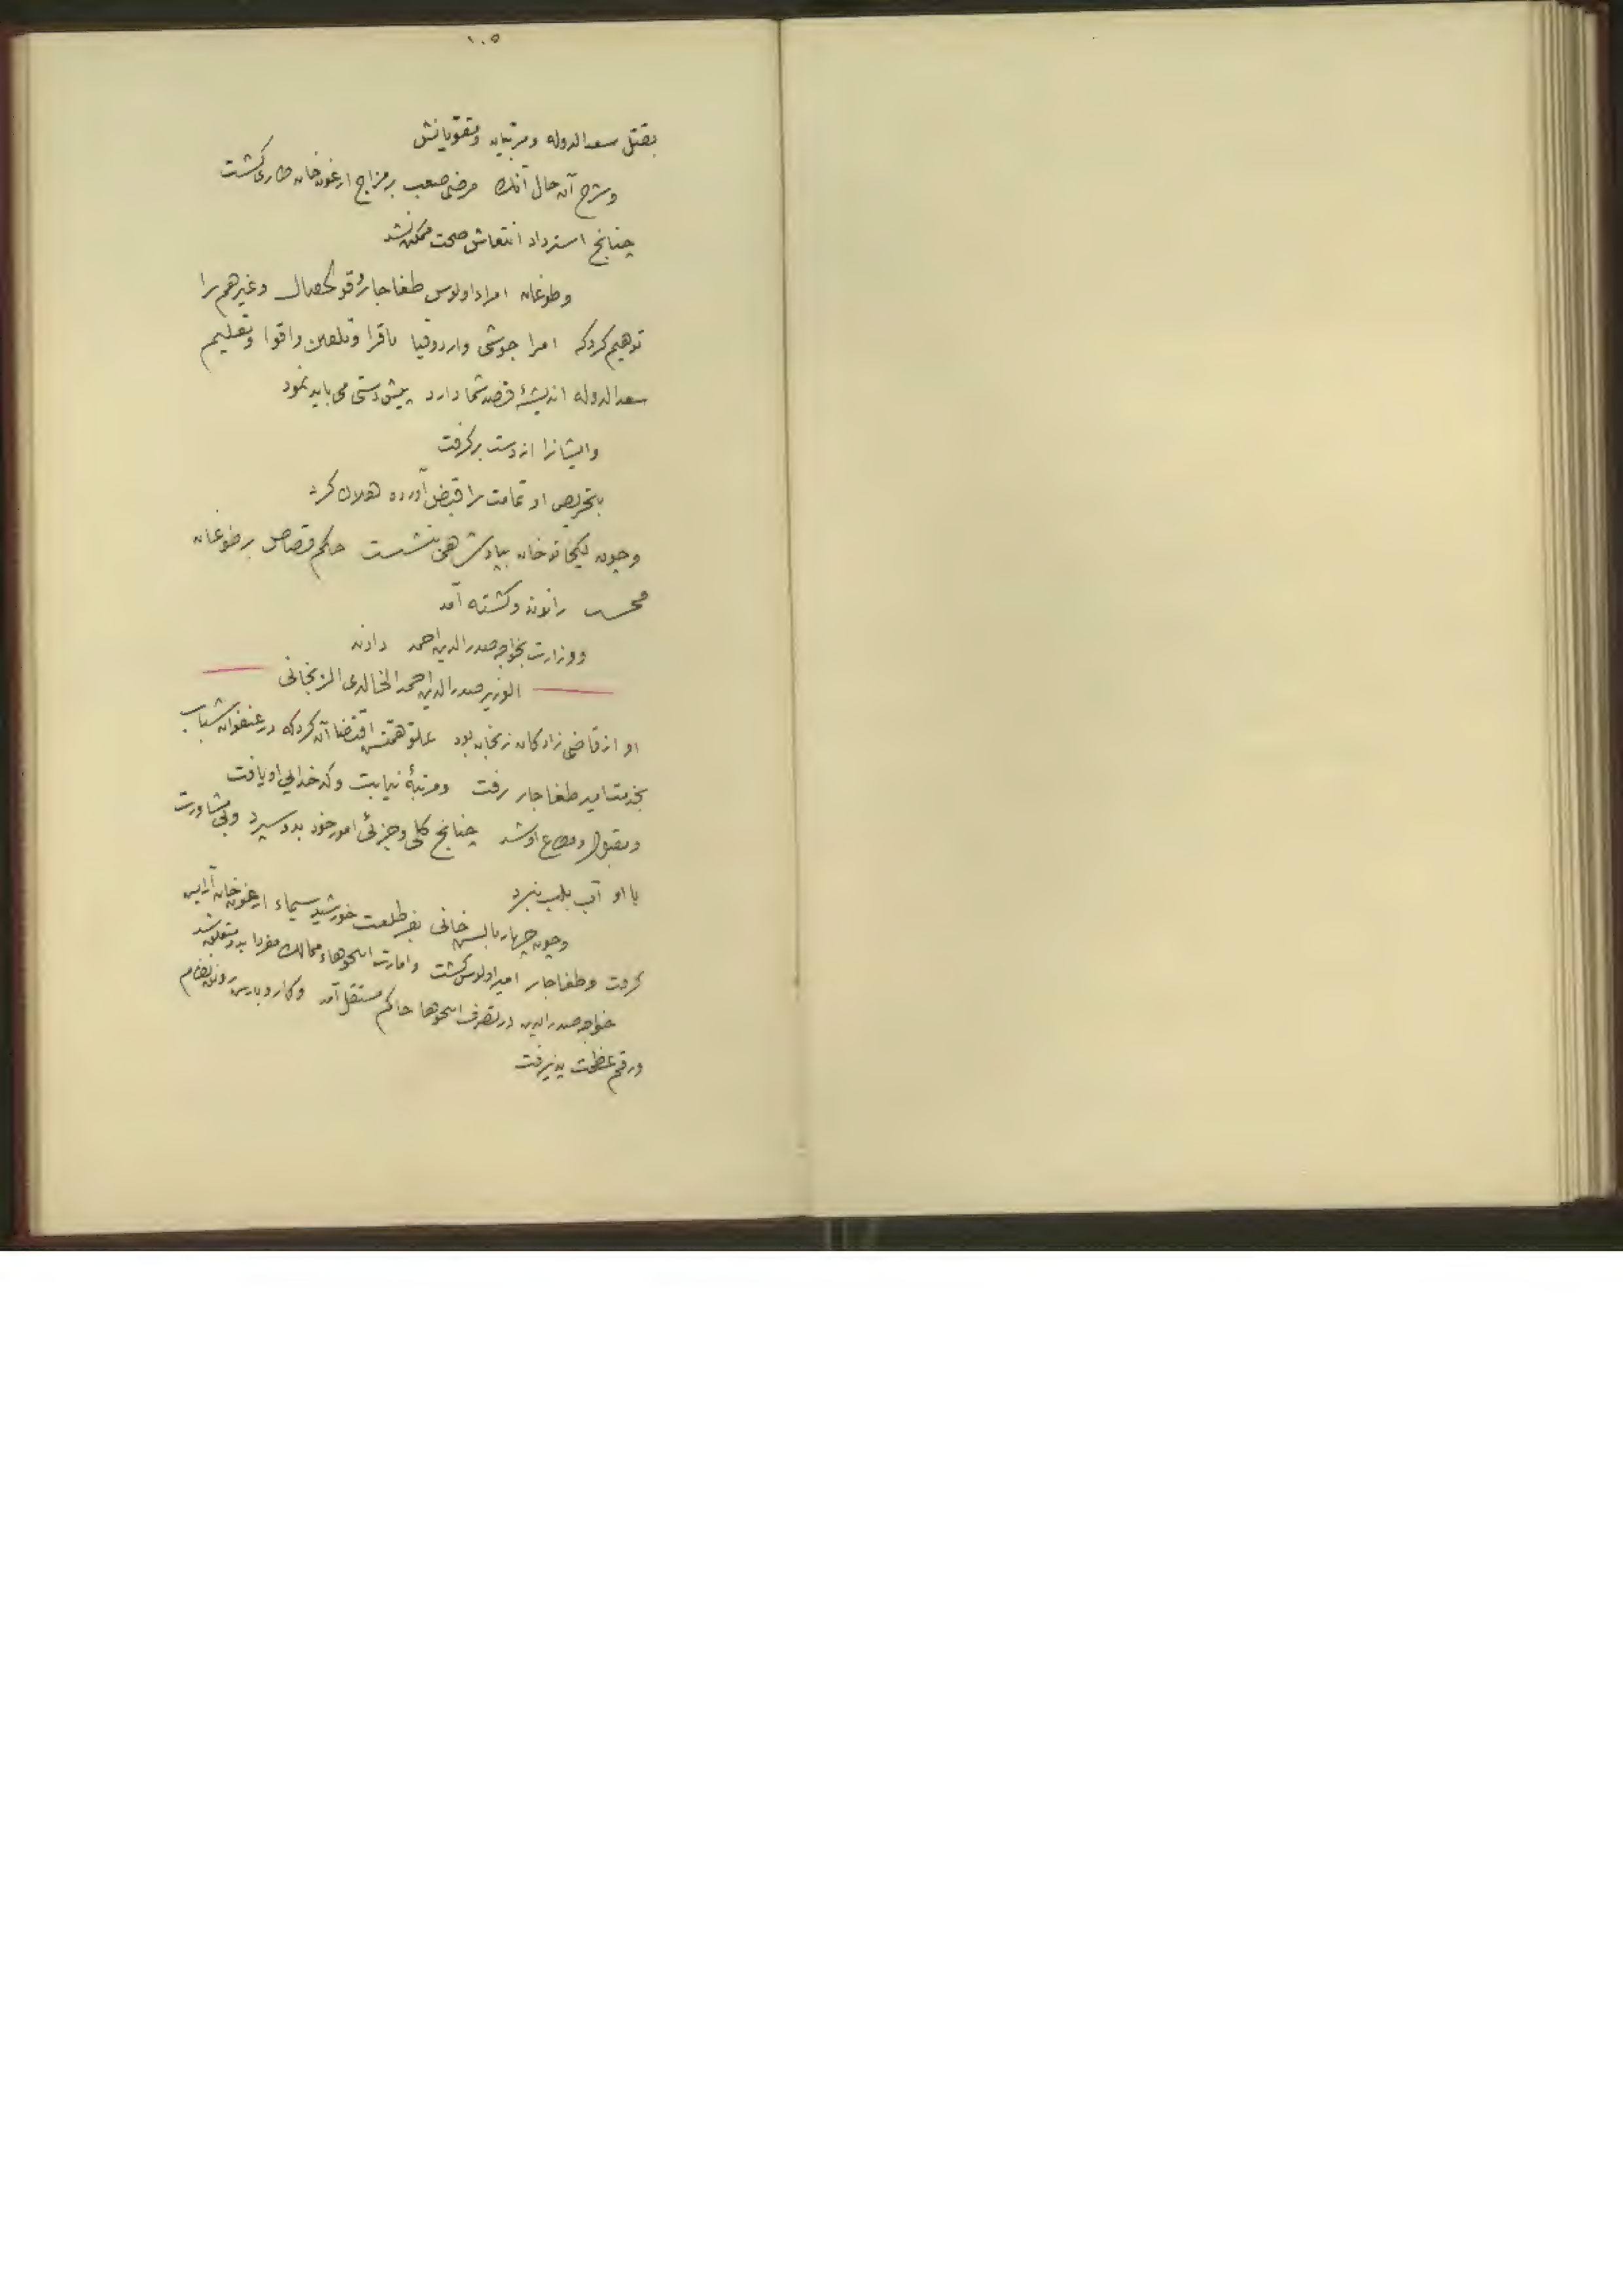 ۱۰۵
بقتل سعدالدوله ومرتبان ومقویانش
وشرح آن حال آنک مرضی صعب بر مزاج ارغون خان طاری گشت
چنانچ استرداد انتعاش صحت ممکن نشد
وطوغان امراء اولوس طغاجار و وغیرهم را
توهیم کرد که امرا جوشی واردوقیا واقوا وتعلیم
سعدالدوله اندیشهٔ قصد شما دارد پیش دستی می باید نمود
وایشانرا از دست برگرفت
بتحریص او تمامت را قبض آورده هلاک کرد
وچون کیخاتو خان بپادشاهی بنشست حکم قصاص بر طوغان
راندند وکشته آمد
ووزارت بخواجه صدرالدین احمد دادند
الوزیر صدرالدین احمد الخالدی الزنجانی
او از قاضی زادگان زنجان بود علو همتش اقتضا آن کرد که در عنفوان شباب
بخدمت امیر طغاجار رفت ومرتبهٔ نیابت وکدخدایی او یافت
ومقبول ومطاع او شد چنانچ کلی وجزئی امور خود بدو سپرد وبی مشاورت
با او آب بلب نبرد
وچون چهار بالش خانی بفر طلعت خورشید سیماء ارغون خان آرایش
گرفت وطغاجار امیر اولوس گشت وامارت اینجوهاء ممالک مفردا بدو متعلق شد
خواجه صدرالدین در تصرف اینجوها حاکم مستقل آمد وکار وبارش رونق نظام
ورقم عظمت پذیرفت